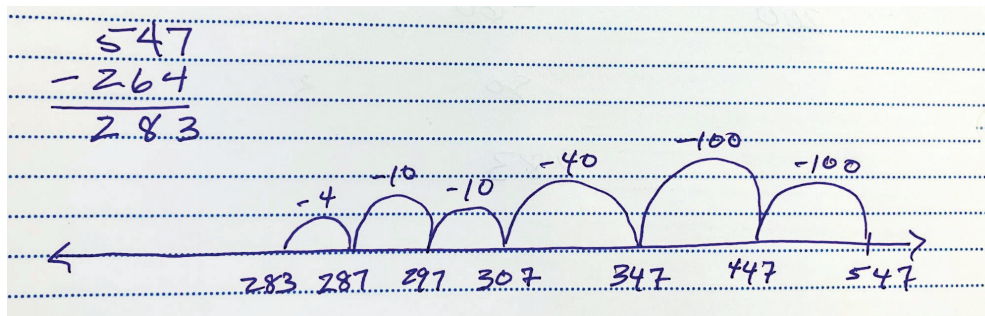 547
- 264
283
-4 -10 -10 -40 -100 -100
283 287 297 307 347 447 547